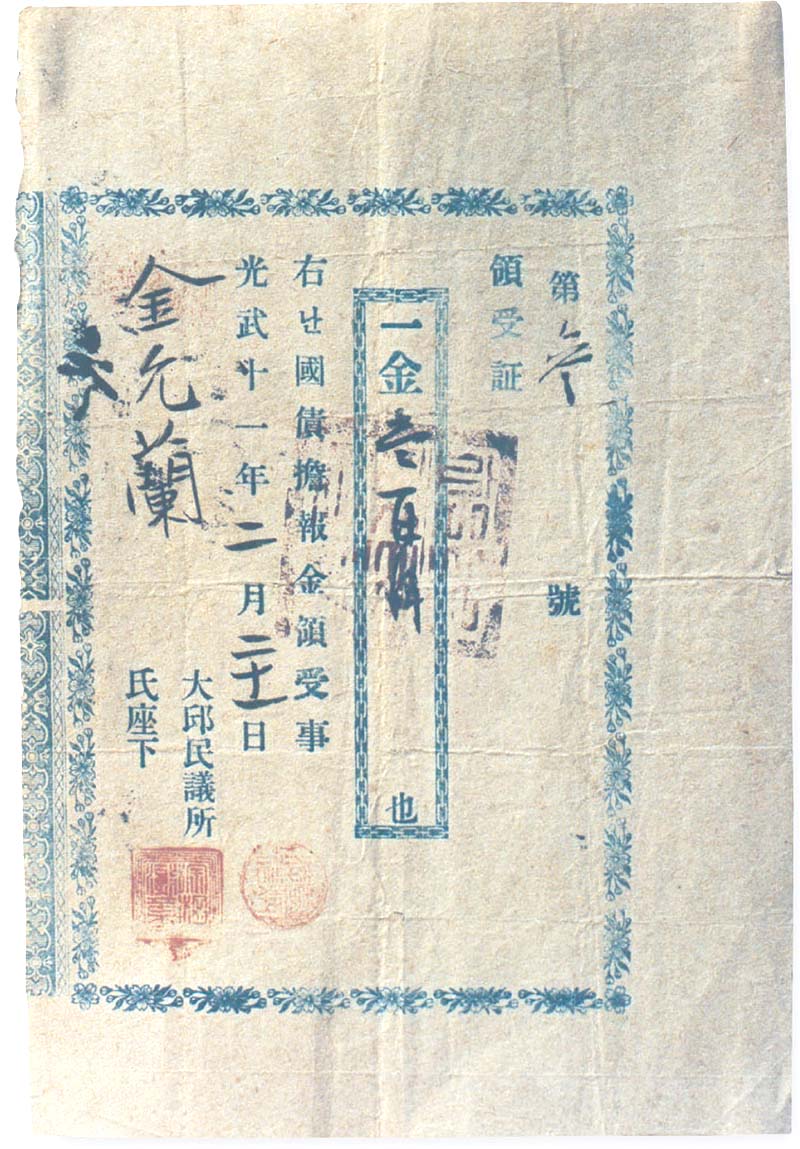 第 參 號
領受証
一金 壹百圜 也
右난國債擔報金領受事
光武十一年二月二十一日
大邱民議所
金允蘭 氏座下